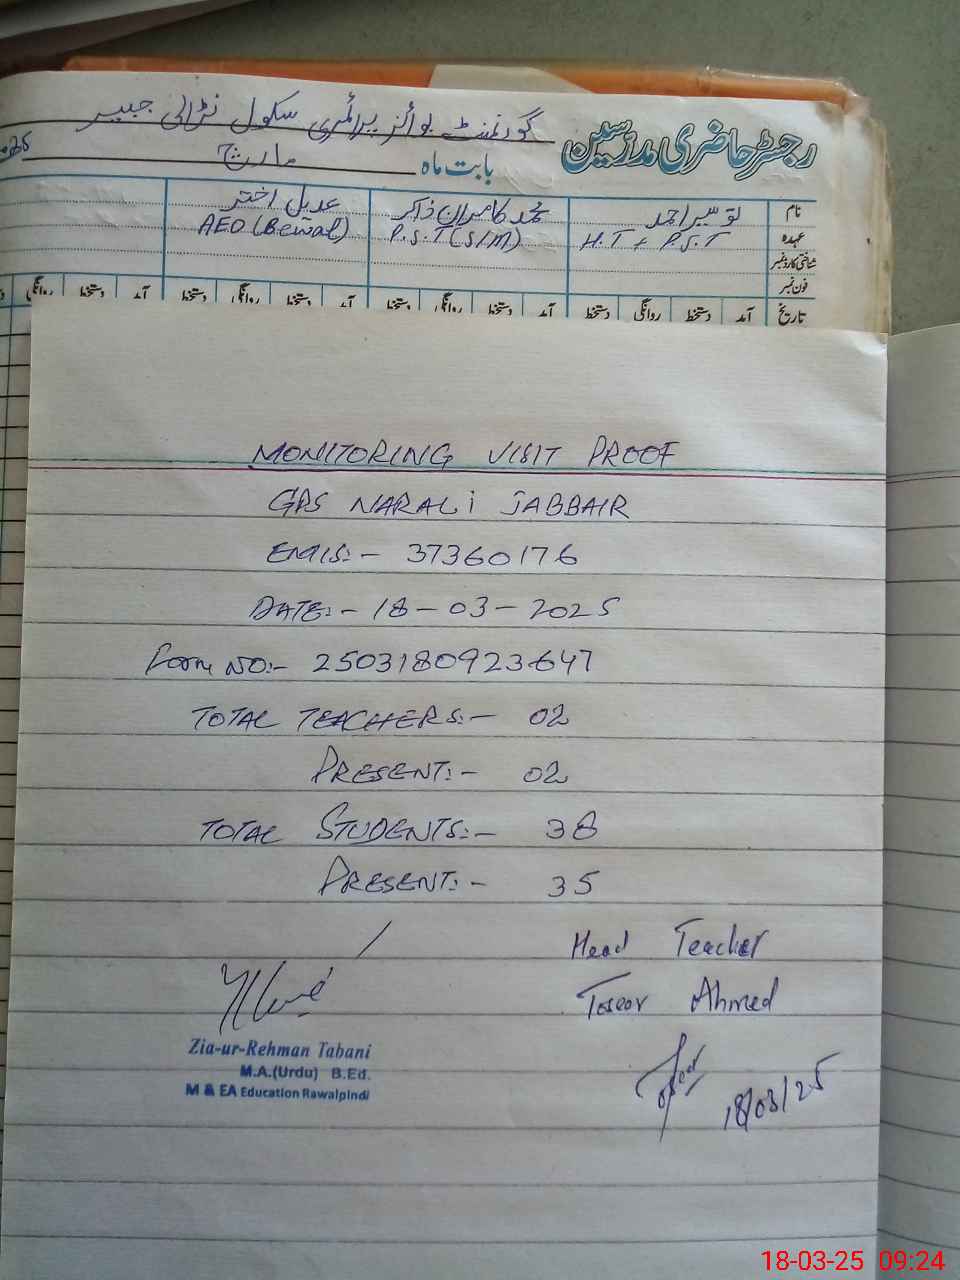 رجسٹر حاضری مدرسین گورنمنٹ بوائز پرائمری سکول نڑالی جبیر
بابت ماہ مارچ
نام توسیر احمد محمد کامران ذاکر عدیل اختر
عہدہ H.T + P.S.T P.S.T (S/M) AEO (Bewal)
شناختی کارڈ نمبر
فون نمبر
تاریخ آمد دستخط روانگی دستخط آمد دستخط روانگی دستخط آمد دستخط روانگی دستخط آمد دستخط روانگی
MONITORING VISIT PROOF
GPS NARALI JABBAIR
EMIS:- 37360176
DATE:- 18-03-2025
Form NO:- 2503180923647
TOTAL TEACHERS:- 02
PRESENT:- 02
TOTAL STUDENTS:- 38
PRESENT:- 35
Head Teacher
Toseor Ahmed
Zia-ur-Rehman Tabani
M.A.(Urdu) B.Ed.
M & EA Education Rawalpindi
18/03/25
18-03-25 09:24